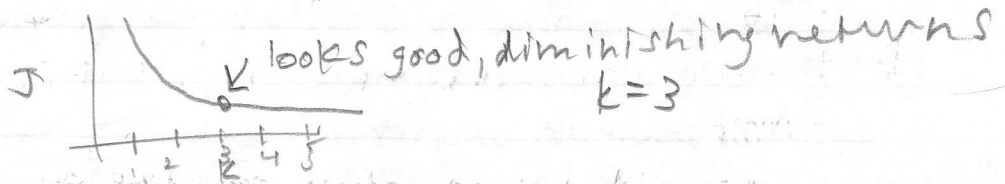 looks good, diminishing returns
k = 3
J
1 2 3 4 5
k